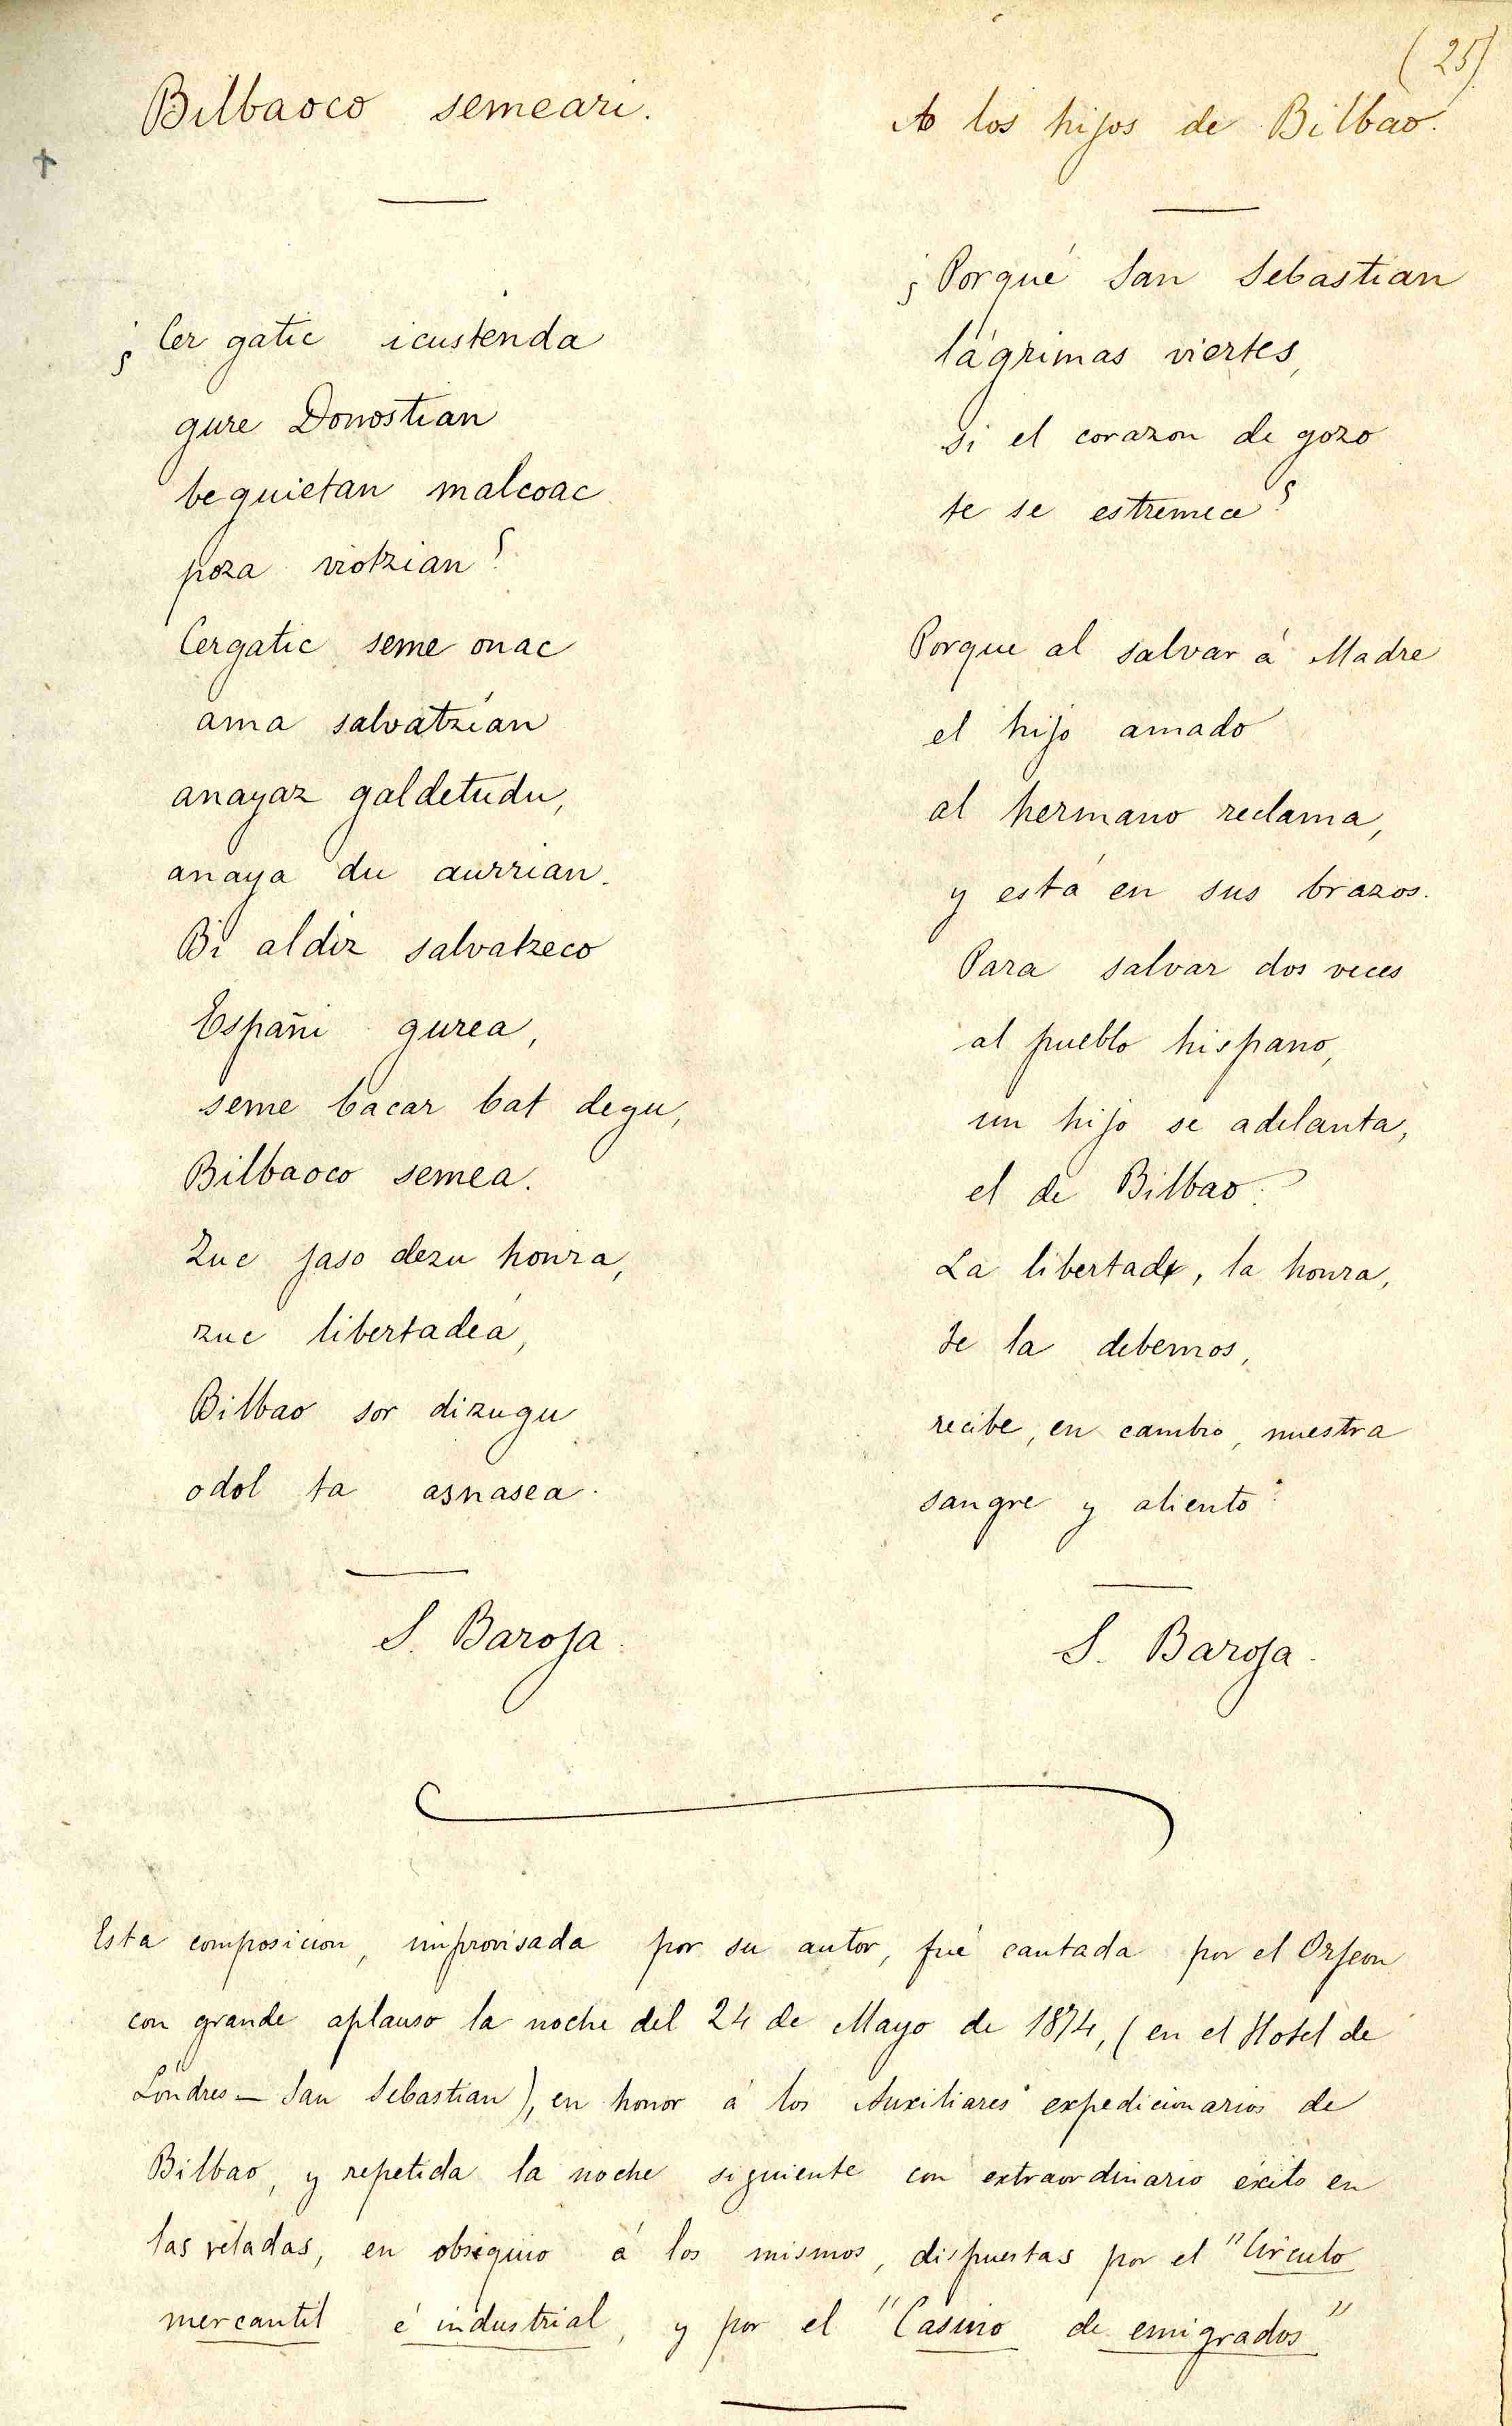 (25)
Bilbaoco semeari.
¿Cer gatic icustenda
gure Donostian
beguietan malcoac
poza viotzian?
Cergatic seme onac
ama salvatzían
anayaz galdetudu,
anaya du aurrian.
Bi aldiz salvatzeco
Españi gurea,
seme bacar bat degu,
Bilbaoco semea.
Zuc jaso dezu honra,
zuc libertadeá,
Bilbao zor dizugu
odol ta asnasea.
S. Baroja.
A los hijos de Bilbao.
¿Porqué San Sebastian
lágrimas viertes,
si el corazon de gozo
te se estremece?
Porque al salvar á Madre
el hijo amado
al hermano reclama,
y está en sus brazos.
Para salvar dos veces
al pueblo hispano,
un hijo se adelanta,
el de Bilbao.
La libertad, la honra,
te la debemos,
recibe, en cambio, nuestra
sangre y aliento.
S. Baroja.
Esta composicion, improvisada por su autor, fué cantada por el Orfeon
con grande aplauso la noche del 24 de Mayo de 1874, (en el Hotel de
Lóndres — San Sebastian), en honor á los Auxiliares expedicionarios de
Bilbao, y repetida la noche siguiente con extraordinario éxito en
las veladas, en obsequio á los mismos, dispuestas por el "Círculo
mercantil é industrial, y por el "Casino de emigrados"